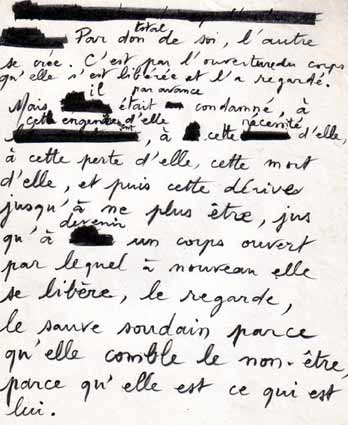 total
Par don de soi, l'autre
se crée. C'est par l'ouverture du corps
qu'elle s'est libérée et l'a regardé.
il par avance
Mais était condamné, à
cet d'elle nécessité
, à cette d'elle,
à cette perte d'elle, cette mort
d'elle, et puis cette dérives
jusqu'à ne plus être, jus
devenir
qu'à un corps ouvert
par lequel à nouveau elle
se libère, le regarde,
le sauve soudain parce
qu'elle comble le non-être,
parce qu'elle est ce qui est
lui.